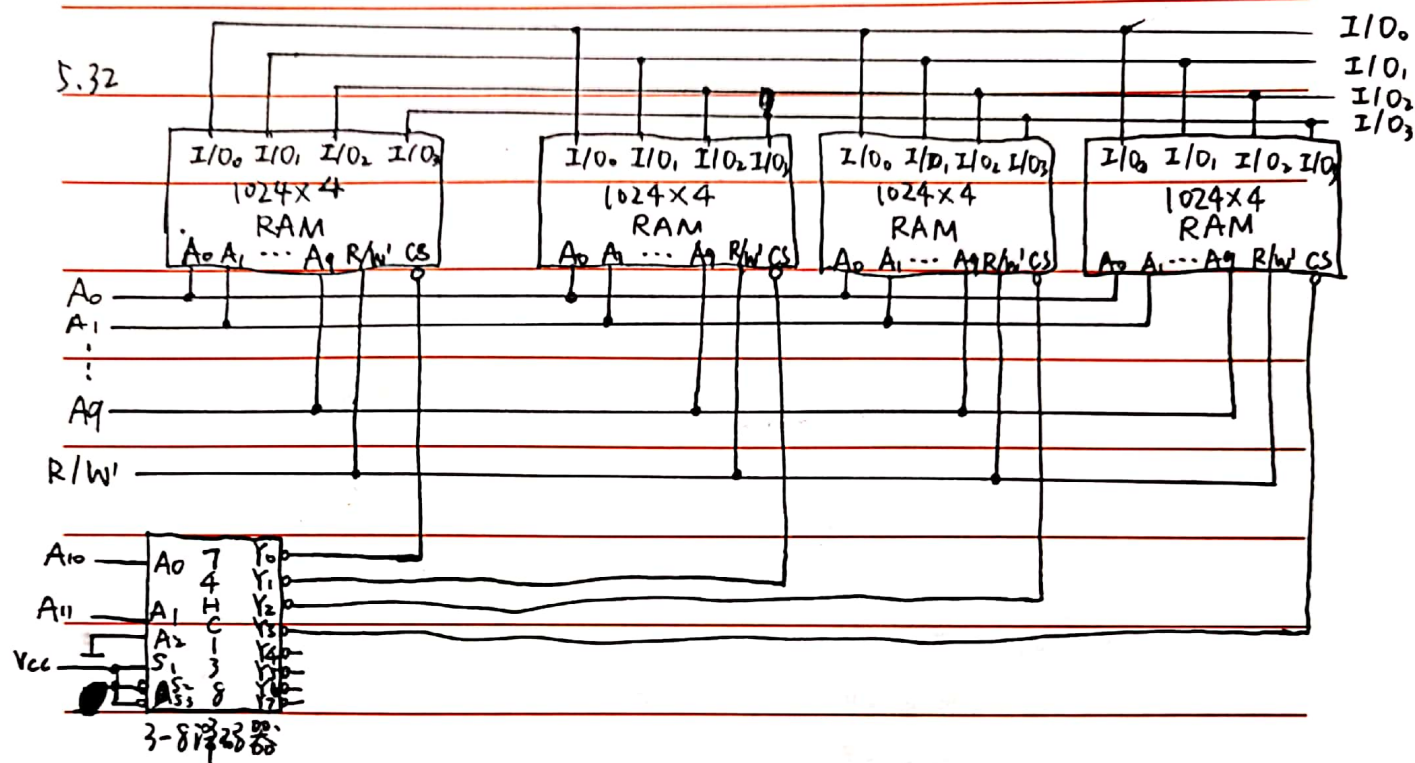 5.32
I/O₀
I/O₁
I/O₂
I/O₃
I/O₀ I/O₁ I/O₂ I/O₃
1024×4
RAM
A₀ A₁ ··· A₉ R/W' CS
I/O₀ I/O₁ I/O₂ I/O₃
1024×4
RAM
A₀ A₁ ··· A₉ R/W' CS
I/O₀ I/O₁ I/O₂ I/O₃
1024×4
RAM
A₀ A₁ ··· A₉ R/W' CS
I/O₀ I/O₁ I/O₂ I/O₃
1024×4
RAM
A₀ A₁ ··· A₉ R/W' CS
A₀
A₁
A₉
R/W'
A₁₀
A₁₁
Vcc
A₀
A₁
A₂
S₁
S₂
S₃
74HC138
Y₀
Y₁
Y₂
Y₃
Y₄
Y₅
Y₆
Y₇
3-8译码器